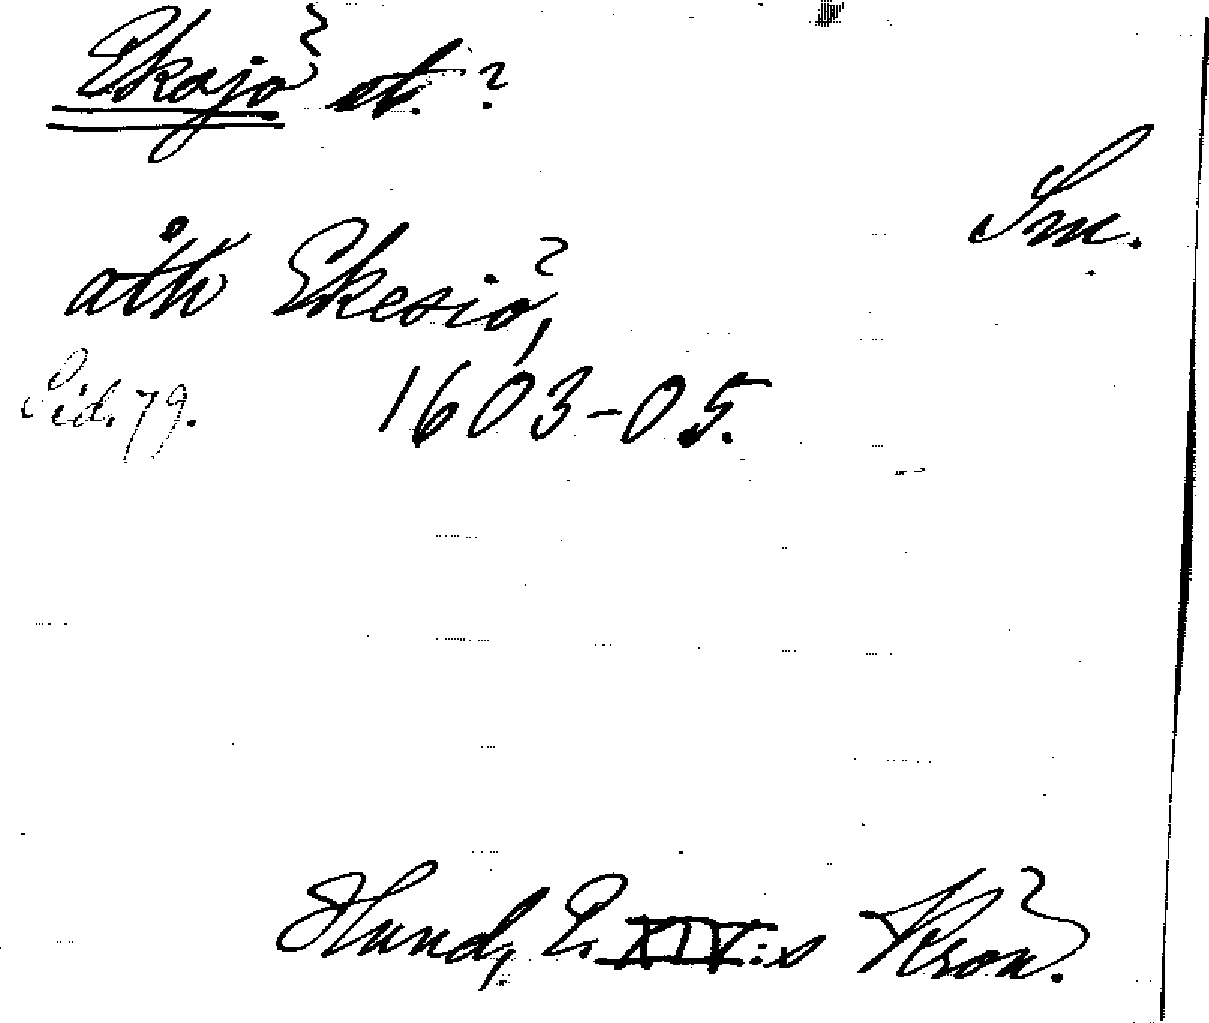 Ekajö st. ?
Sm.
åth Ekesiö,
Sid. 79. 1603-05.
Hund, E. XIV:s Krön.